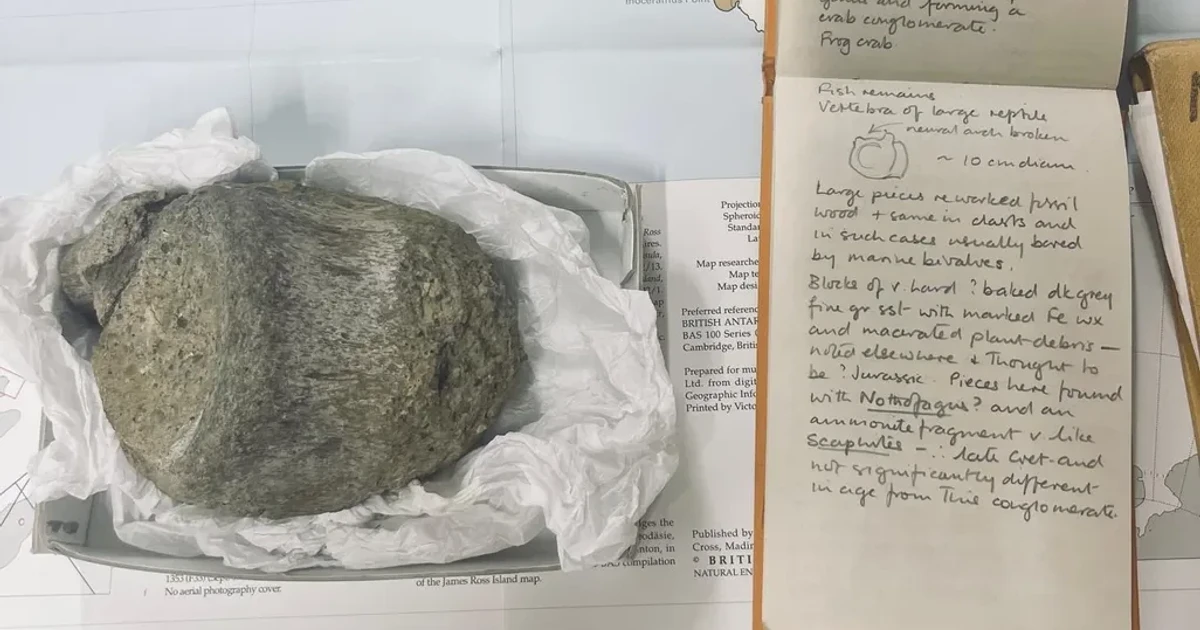 Inoceramus Point
and forming a
crab conglomerate.
Frog crab
Fish remains
Vertebra of large reptile
neural arch broken
~ 10 cm diam.
Large pieces reworked fossil
wood + same in clasts and
in such cases usually bored
by marine bivalves.
Blocks of v. hard ? baked dk grey
fine gr sst with marked Fe wx
and macerated plant-debris —
noted elsewhere & Thought to
be ? Jurassic. Pieces here found
with Nothofagus? and an
ammonite fragment v. like
Scaphites — ∴ late Cret and
not significantly different
in age from This conglomerate.
Projection
Spheroid
Standa
La
Map researche
Map te
Map desi
Preferred referenc
BRITISH ANTAR
BAS 100 Series
Cambridge, Britis
Prepared for mu
Ltd. from digit
Geographic Info
Printed by Victo
Ross
/13.
Published by
Cross, Madin
© BRITI
NATURAL EN
ges the
eodäsie,
nton, in
compilation
No aerial photography cover.
of the James Ross Island map.